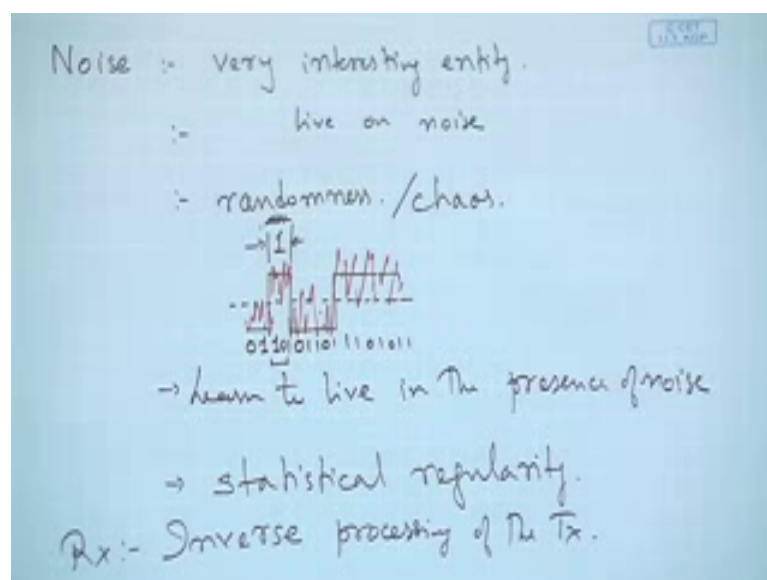 Noise :- very interesting entity.
:- live on noise
:- randomness. / chaos.
1
0110011011101011
→ Learn to live in the presence of noise
→ statistical regularity.
Rx:- Inverse processing of the Tx.